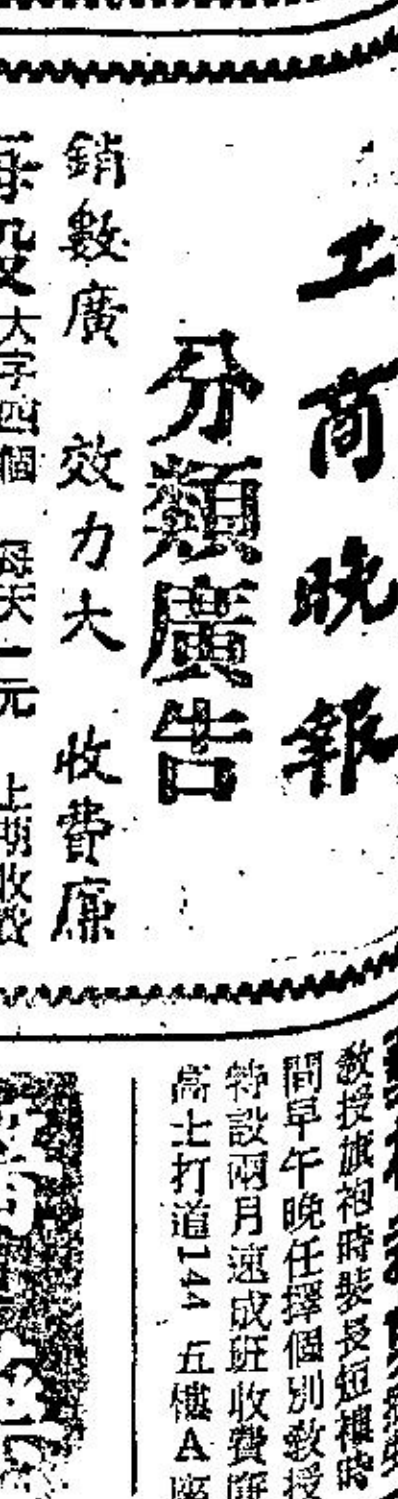 工商晚報
分類廣告
銷數廣 效力大 收費廉
大字四個 每天一元 上期收費
教授旗袍時裝長短樓時
間早午晚任擇個別教授
特設兩月速成班收費
高士打道144五樓A座